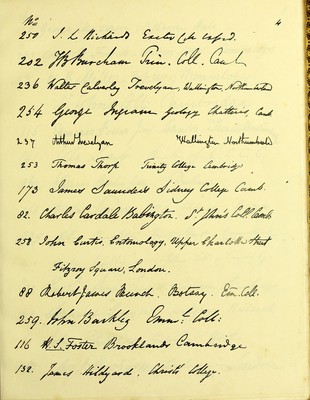 No 4
250 J. L. Richards Exeter Coll. Oxford.
202 Burcham Trin. Coll. Camb
236 Walter Calverley Trevelyan, Wallington, Northumberland
254 George Ingram geology Chatteris, Camb
237 Arthur Trevelyan Wallington Northumberland
253 Thomas Thorp Trinity College Cambridge
173 James Saunders Sidney College Camb.
82. Charles Cardale Babington. St John's Coll. Camb
258 John Curtis, Entomology, Upper Charlotte Street
Fitzroy Square, London.
88 Robert James Bunch. Botany. Em. Coll.
259. John Barkley Emml. Coll:
116 W. S. Foster Brooklands Cambridge
132. James Hildyard. Christ's College.